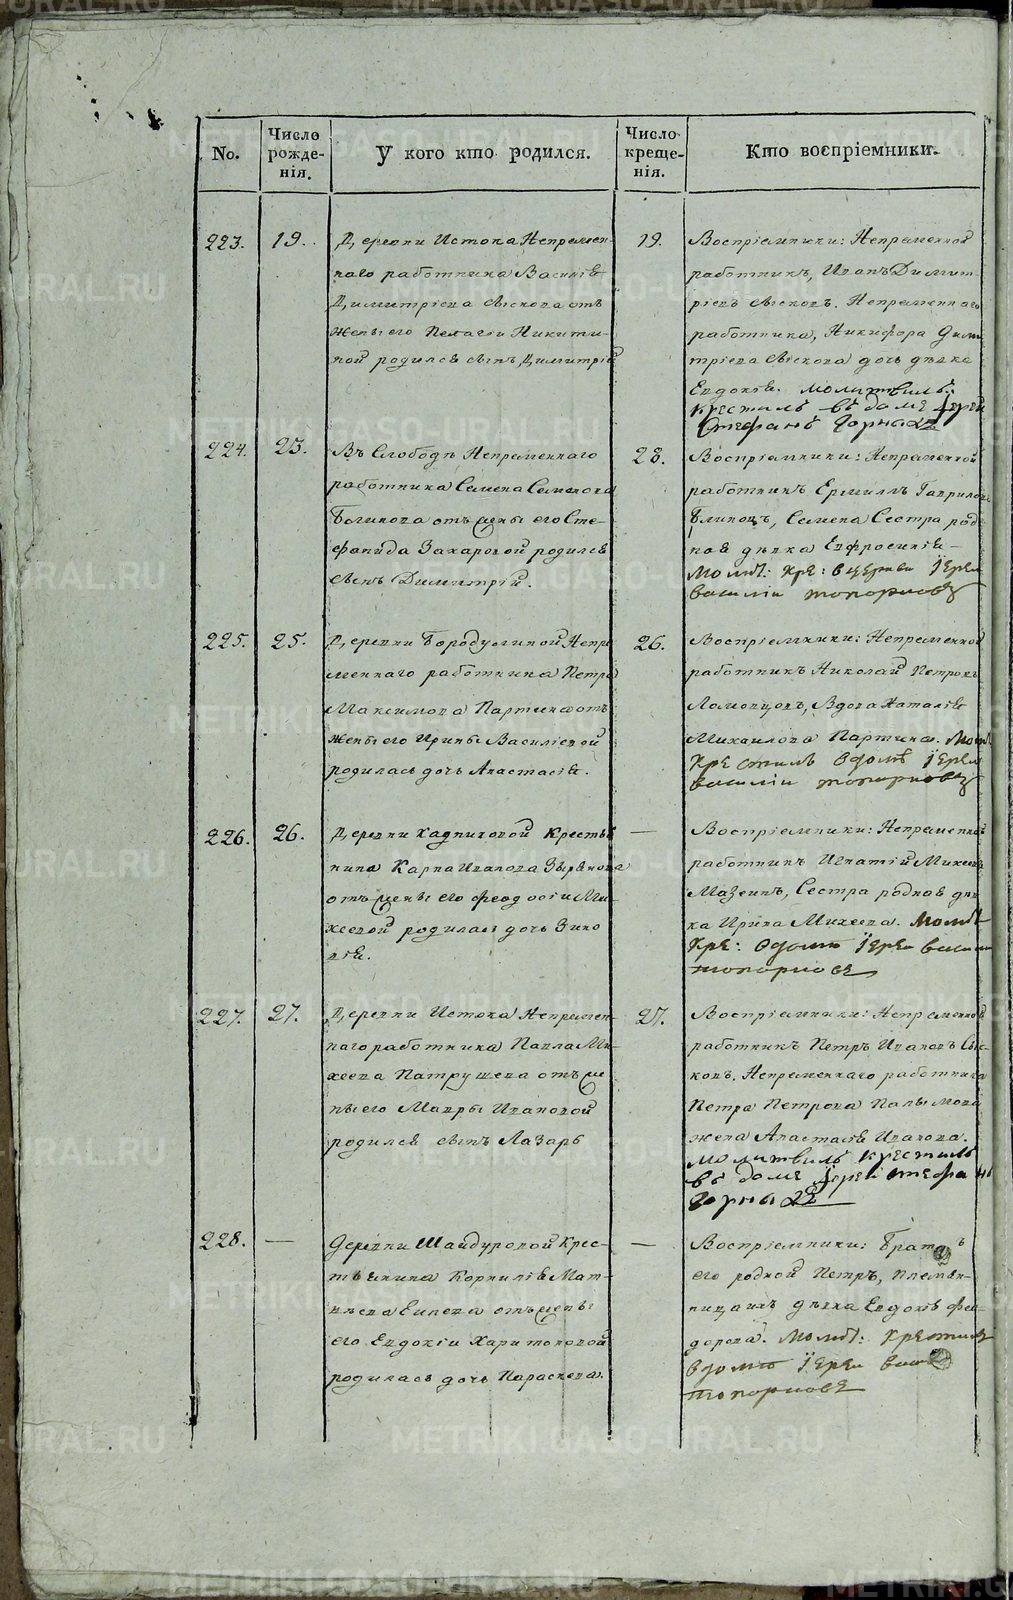 No.
Число рожде-нія.
У кого кто родился.
Число креще-нія.
Кто воспріемники.
223.
19.
Деревни Истока Непремен-
наго работника Василія
Димитріева Сыскова отъ
жены его Пелагіи Никити-
ной родился сынъ Димитрій
19.
Воспріемники: Непременной
работникъ, Иванъ Димит-
ріевъ Сысковъ. Непременнаго
работника, Никифора Дими
тріева Сыскова дочь девка
Евдокія. молитвилъ
крестилъ въ доме Іерей
Стефанъ Горныхъ
224.
23.
Въ Слободе Непременнаго
работника Семена Семенова
Блинова отъ жены его Сте-
фанида Захаровой родился
сынъ Димитрій.
28.
Воспріемники: Непременной
работникъ Ермилъ Гаврилов
Блиновъ, Семена Сестра род
ная девка Евфросинія
Молит: кре: в церкви Іереи
василіи топорковъ
225.
25.
Деревни Бородулиной Непре
меннаго работника Петра
Максимова Партина отъ
жены его Ирины Василіевой
родилась дочь Анастасія.
26.
Воспріемники: Непременной
работникъ Николай Петровъ
Ломовцовъ, Вдова Наталія
Михаилова Партина. Молит
крестилъ вдоме Іереи
василіи топорковъ
226.
26.
Деревни Кадниковой Кресть
нина Карпа Иванова Зырянова
отъ жены его Феодосіи Ми-
хеевой родилась дочь Зино
вія.
—
Воспріемники: Непременной
работникъ Игнатій Михеевъ
Мазеинъ, Сестра родная дев
ка Ирина Михеева. Молит
Кре: вдоме Іереи васили
топорковъ
227.
27.
Деревни Истока Непремен-
наго работника Павла Ми-
хеева Патрушева отъ же
ны его Мавры Ивановой
родился сынъ Лазарь
27.
Воспріемники: Непременной
работникъ Петръ Ивановъ Сыс-
ковъ. Непременнаго работника
Петра Петрова Палымова
жена Анастасія Иванова.
молитвилъ крестилъ
въ доме Іерей стефанъ
Горныхъ
228.
—
Деревни Шайдуровой Крес-
тьянина Корнилія Мат-
веева Енева отъ жены
его Евдокіи Харитоновой
родилась дочь Параскева.
—
Воспріемники: Братъ
его родной Петръ, племян-
ница ихъ девка Евдокія Фе-
дорова. Молит: крестилъ
вдоме Іереи васи
топорковъ
METRIKI.GASO-URAL.RU